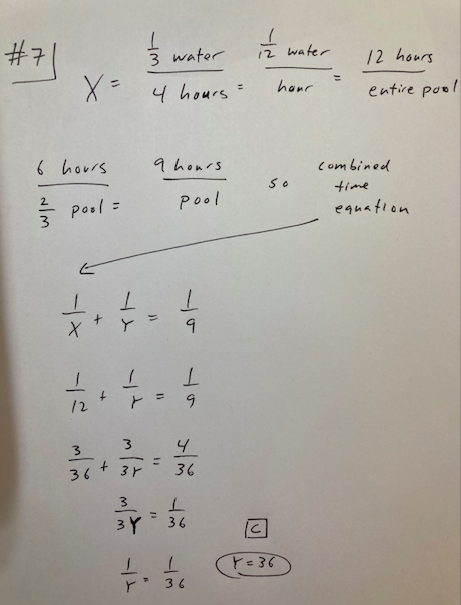 #7
X = 1/3 water / 4 hours = 1/12 water / hour = 12 hours / entire pool
6 hours / 2/3 pool = 9 hours / pool so combined time equation
1/X + 1/Y = 1/9
1/12 + 1/Y = 1/9
3/36 + 3/3Y = 4/36
3/3Y = 1/36
1/Y = 1/36
C
Y = 36